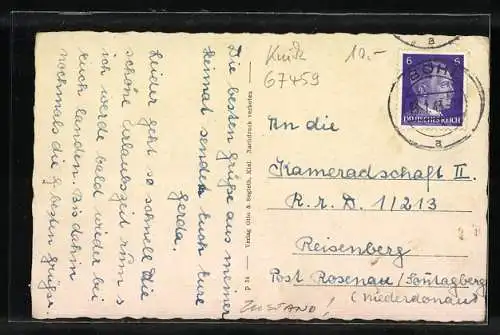 Die besten Grüße aus meiner
Heimat sendet Euch Eure
Gerda.
Leider geht so schnell die
schöne Urlaubszeit rum &
ich werde bald wieder bei
Euch landen. Bis dahin
nochmals die h. besten Grüße.
P 24 Verlag Otto & Segieth, Kiel Nachdruck verboten
10.-
67459
6 6
DEUTSCHES REICH
a
a
An die
Kameradschaft II.
R.A.D. 1/213
Reisenberg
Post Rosenau/Sonntagberg
(Niederdonau)
ZUSTAND!